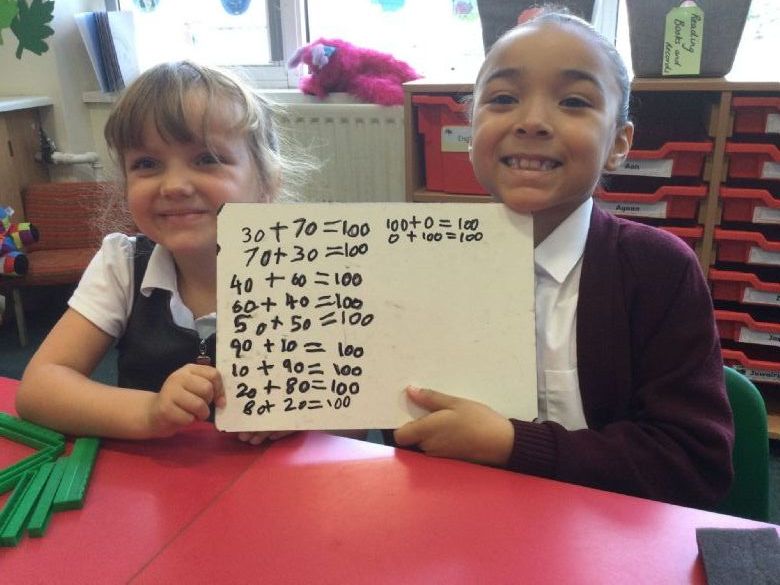 Reading
Books and
records
30+70=100
70+30=100
40+60=100
60+40=100
50+50=100
90+10=100
10+90=100
20+80=100
80+20=100
100+0=100
0+100=100
Aon
Ayaan